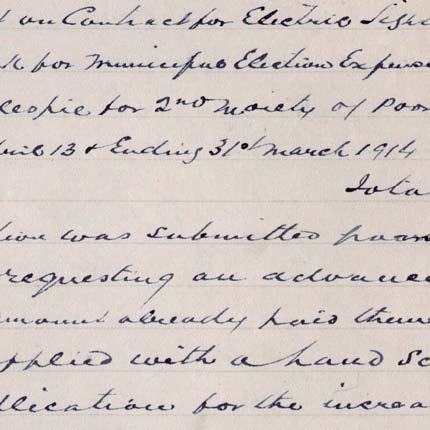 on Contract for Electric Light
for Municipal Election Expense
for 2nd Moiety of Poor
April 13 & Ending 31st March 1914
Total
was submitted from
requesting an advance
amount already paid them
applied with a hand
application for the increa